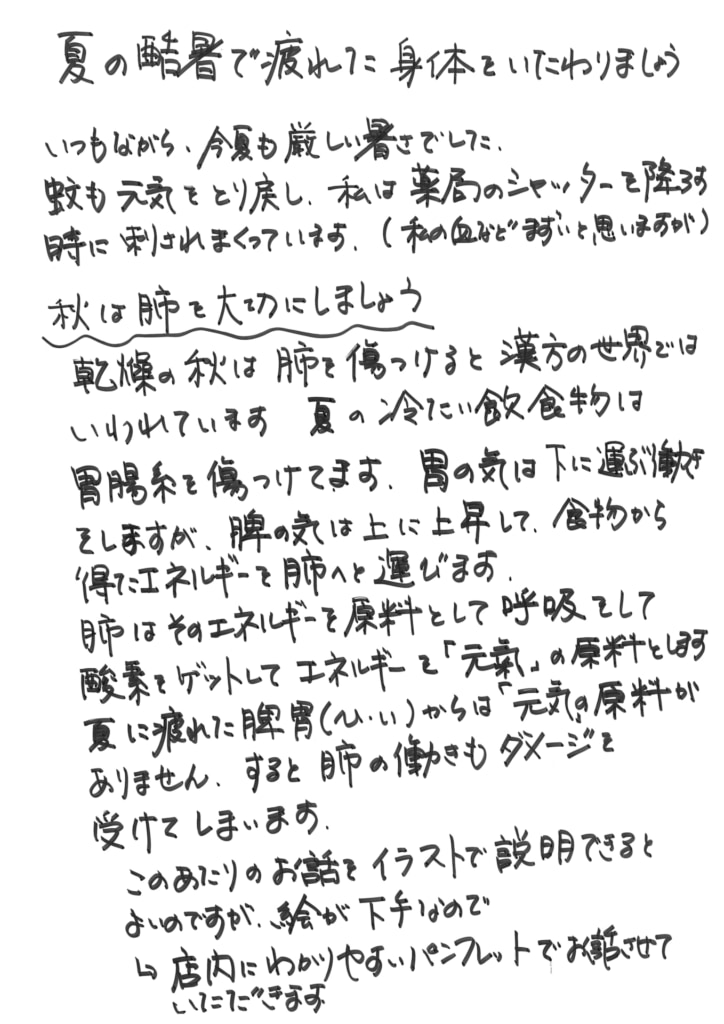 夏の酷暑で疲れた身体をいたわりましょう
いつもながら、今夏も厳しい暑さでした、
蚊も元気をとり戻し、私は薬局のシャッターを降ろす
時に刺されまくっています。(私の血などまずいと思いますが)
秋は肺を大切にしましょう
乾燥の秋は肺を傷つけると漢方の世界では
いわれています 夏の冷たい飲食物は
胃腸系を傷つけてます。胃の気は下に運ぶ働き
をしますが、脾の気は上に上昇して、食物から
得たエネルギーを肺へと運びます。
肺はそのエネルギーを原料として呼吸をして
酸素をゲットしてエネルギーを「元氣」の原料とします
夏に疲れた脾胃(ひ・い)からは「元気」の原料が
ありません。すると肺の働きもダメージを
受けてしまいます。
このあたりのお話をイラストで説明できると
よいのですが、絵が下手なので
↳ 店内にわかりやすいパンフレットでお話させて
いただきます